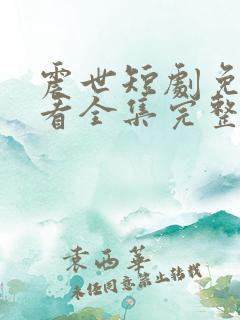 震世短劇免
看全集完整
袁西華
未经同意禁止转载